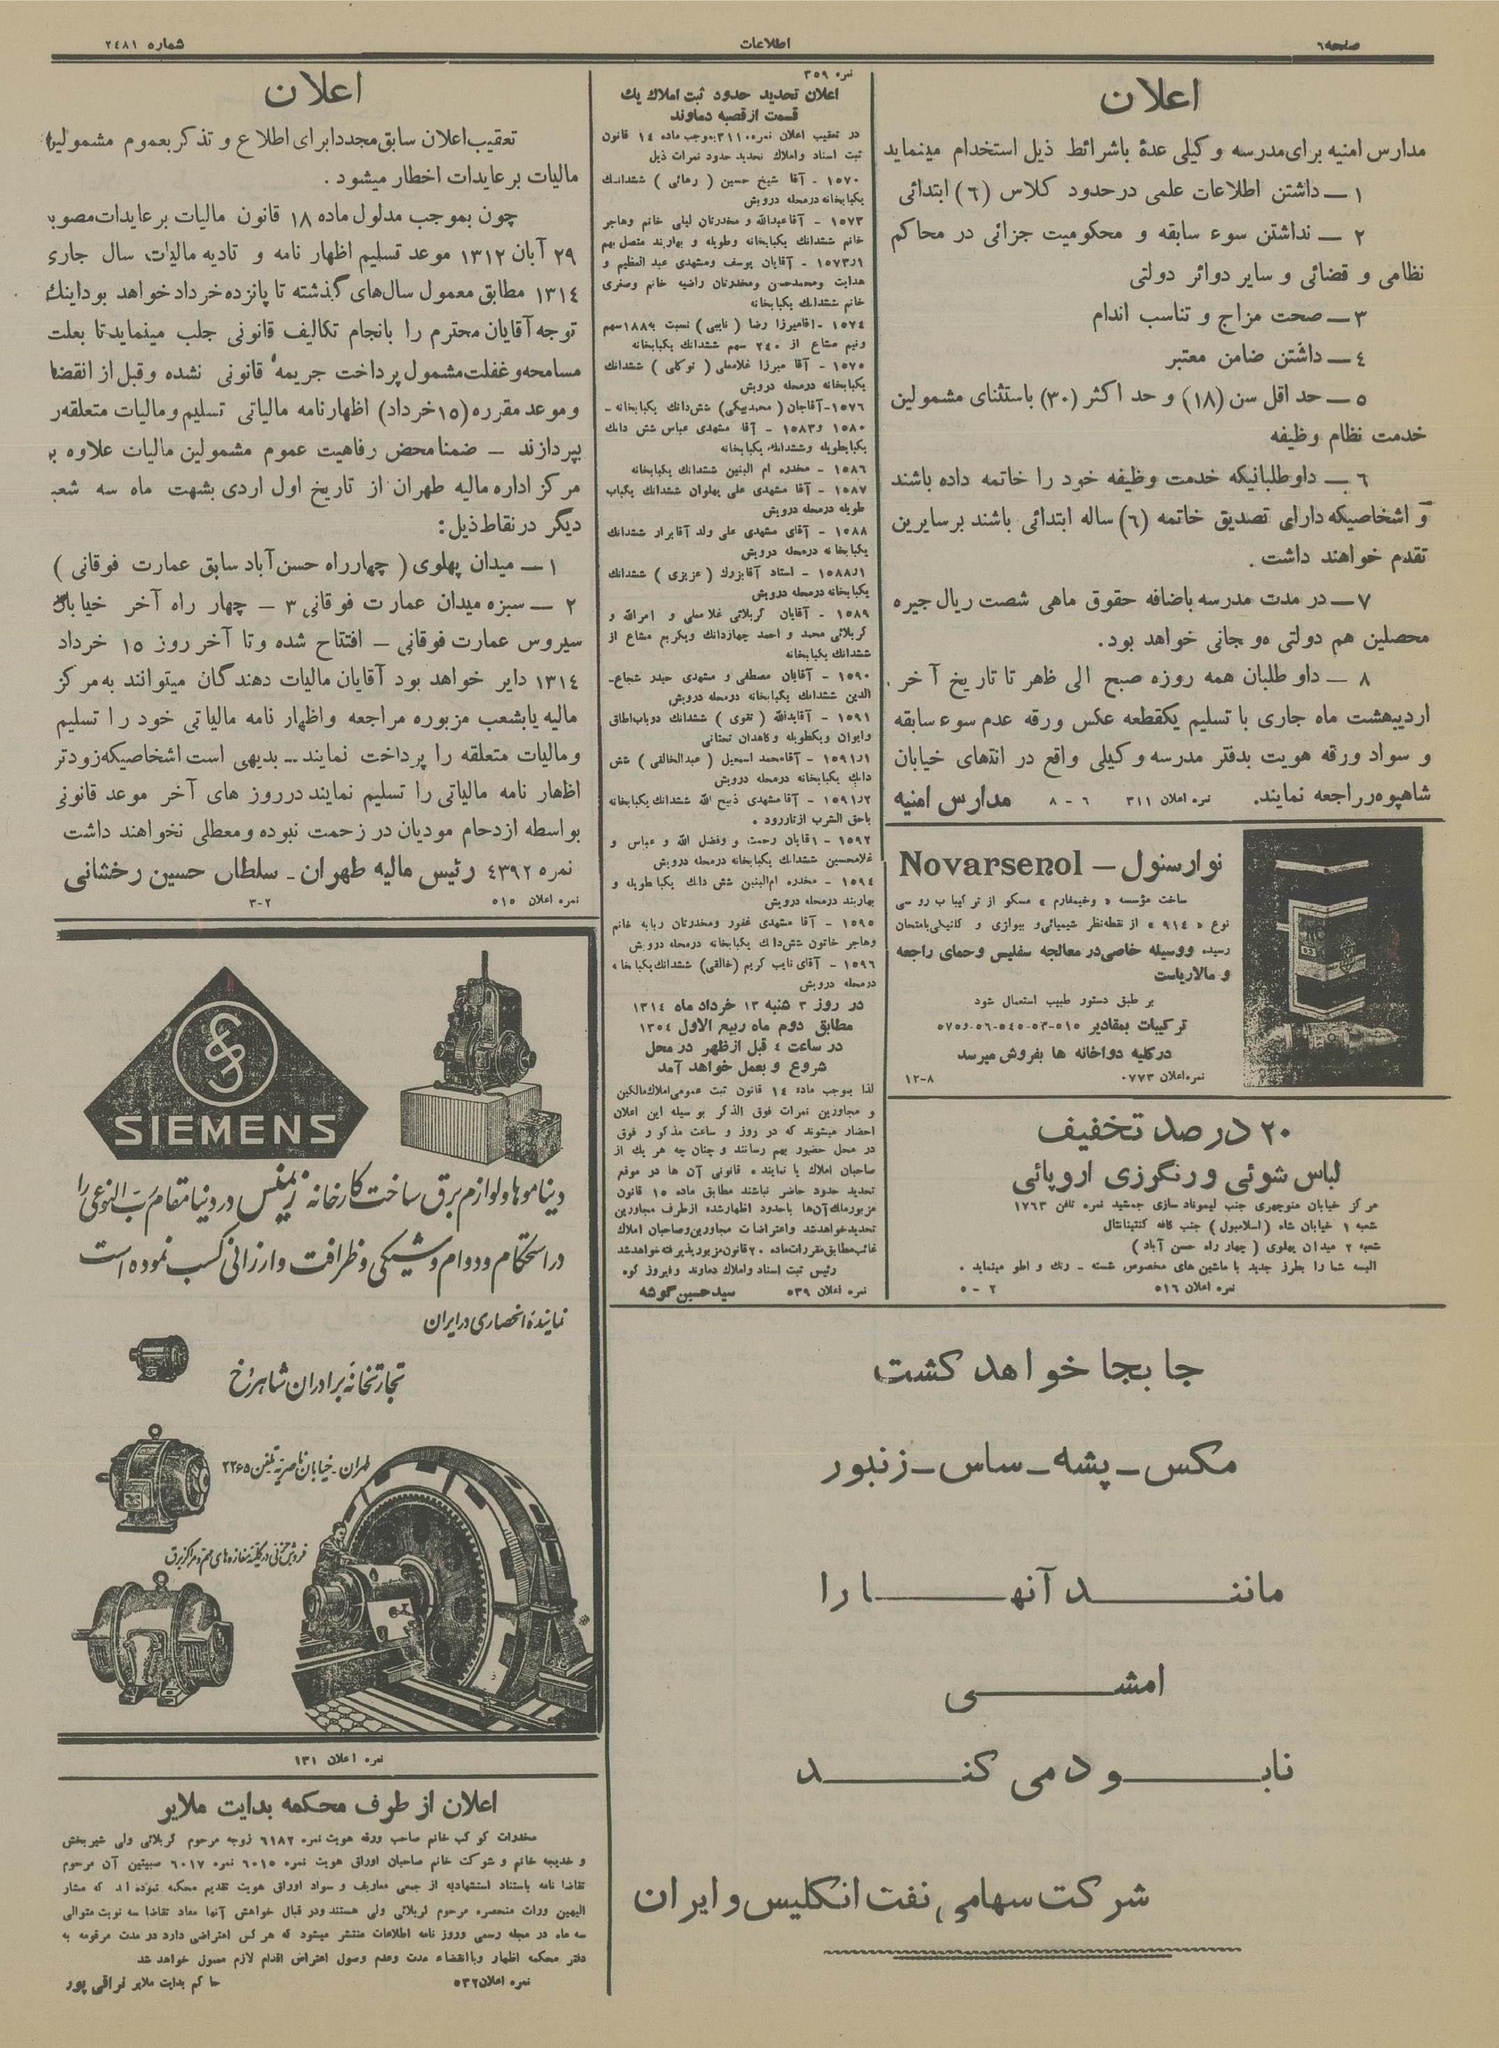 صفحه ٦
اطلاعات
شماره ٢٤٨١
اعلان
مدارس امنیه برای مدرسه وکیلی عدۀ باشرائط ذیل استخدام مینماید
١ – داشتن اطلاعات علمی در حدود کلاس (٦) ابتدائی
٢ – نداشتن سوء سابقه و محکومیت جزائی در محاکم
نظامی و قضائی و سایر دوائر دولتی
٣ – صحت مزاج و تناسب اندام
٤ – داشتن ضامن معتبر
٥ – حد اقل سن (١٨) و حد اکثر (٣٠) باستثنای مشمولین
خدمت نظام وظیفه
٦ – داوطلبانیکه خدمت وظیفه خود را خاتمه داده باشند
و اشخاصیکه دارای تصدیق خاتمه (٦) ساله ابتدائی باشند برسایرین
تقدم خواهند داشت .
٧ – در مدت مدرسه باضافه حقوق ماهی شصت ریال جیره
محصلین هم دولتی و مجانی خواهد بود.
٨ – داوطلبان همه روزه صبح الی ظهر تا تاریخ آخر
اردیبهشت ماه جاری با تسلیم یکقطعه عکس ورقه عدم سوء سابقه
و سواد ورقه هویت بدفتر مدرسه وکیلی واقع در انتهای خیابان
شاهپور مراجعه نمایند. نمره اعلان ٣١١ ٦ – ٨ مدارس امنیه
نوارسنول – Novarsenol
ساخت مؤسسه « وخیمفارم » مسکو از ترکیبات روسی
نوع « ٩١٤ » از نقطه نظر شیمیائی و بیولژی و کلنیکی بامتحان
رسیده ووسیله خاصی در معالجه سفلیس وحمای راجعه
و مالاریاست
بر طبق دستور طبیب استعمال شود
ترکیبات بمقادیر
درکلیه دواخانه ها بفروش میرسد
نمره اعلان ٠٧٧٣ ٨–١٢
٢٠ درصد تخفیف
لباس شوئی و رنگرزی اروپائی
مرکز خیابان منوچهری جنب لیموناد سازی جمشید نمره تلفن ١٧٦٣
شعبه ١ خیابان شاه (اسلامبول) جنب کافه کنتیننتال
شعبه ٢ میدان پهلوی (چهار راه حسن آباد)
البسه شما را بطرز جدید با ماشین های مخصوص شسته – رنگ و اطو مینماید .
نمره اعلان ٥١٦ ٢ – ٥
نمره ٣٥٩
اعلان تحدید حدود ثبت املاک یک
قسمت از قصبه دماوند
در تعقیب اعلان نمره ٣١١٠ بموجب ماده ١٤ قانون
ثبت اسناد و املاک تحدید حدود نمرات ذیل
١٥٧٠ – آقا شیخ حسین (رهائی) ششدانگ
یکبابخانه درمحله درویش
١٥٧٣ – آقا عبدالله و مخدرتان لیلی خانم وهاجر
خانم ششدانگ یکبابخانه وطویله و بهاربند متصل بهم
١ر١٥٧٣ – آقایان یوسف ومشهدی عبدالعظیم و
هدایت ومحمدحسن ومخدرتان راضیه خانم وصغری
خانم ششدانگ یکبابخانه
١٥٧٤ – آقامیرزا رضا (نایبی) نسبت به ١٨٨ سهم
ونیم مشاع از ٢٤٠ سهم ششدانگ یکبابخانه
١٥٧٥ – آقا میرزا غلامعلی (توکلی) ششدانگ
یکبابخانه درمحله درویش
١٥٧٦ – آقاجان (محمدبیکی) شش دانگ یکبابخانه –
١٥٨٠ و ١٥٨٣ – آقا مشهدی عباس شش دانگ
یکبابطویله وششدانگ یکبابخانه
١٥٨٦ – مخدره ام البنین ششدانگ یکبابخانه
١٥٨٧ – آقا مشهدی علی پهلوان ششدانگ یکباب
طویله درمحله درویش
١٥٨٨ – آقای مشهدی علی ولد آقابرار ششدانگ
یکبابخانه درمحله درویش
١ر١٥٨٨ – استاد آقابزرک (عزیزی) ششدانگ
یکبابخانه درمحله درویش
١٥٨٩ – آقایان کربلائی غلامعلی و امرالله و
کربلائی محمد و احمد چهاردانگ ویکربع مشاع از
ششدانگ یکبابخانه
١٥٩٠ – آقایان مصطفی و مشهدی حیدر شجاع–
الدین ششدانگ یکبابخانه درمحله درویش
١٥٩١ – آقایدالله (تقوی) ششدانگ دوباب اطاق
وایوان ویکطویله وکاهدان تحتانی
١ر١٥٩١ – آقامحمد اسمعیل (عبدالخالقی) شش
دانگ یکبابخانه درمحله درویش
٢ر١٥٩١ – آقامشهدی ذبیح الله ششدانگ یکبابخانه
باحق الشرب ازتاررود .
١٥٩٢ – آقایان رحمت و وفضل الله و عباس و
غلامحسین ششدانگ یکبابخانه درمحله درویش
١٥٩٤ – مخدره ام‌البنین شش دانگ یکبا طویله و
بهاربند درمحله درویش
١٥٩٥ – آقا مشهدی غفور ومخدرتان ربابه خانم
وهاجر خاتون شش‌دانگ یکبابخانه درمحله درویش
١٥٩٦ – آقای نایب کریم (خالقی) ششدانگ یکبابخانه
درمحله درویش
در روز ٣ شنبه ١٣ خرداد ماه ١٣١٤
مطابق دوم ماه ربیع الاول ١٣٥٤
در ساعت ٤ قبل ازظهر در محل
شروع و بعمل خواهد آمد
لذا بموجب ماده ١٤ قانون ثبت عمومی املاک مالکین
و مجاورین نمرات فوق الذکر بوسیله این اعلان
احضار میشوند که در روز و ساعت مذکور فوق
در محل حضور بهم رسانند و چنان چه هر یک از
صاحبان املاک یا نماینده قانونی آن ها در موقع
تحدید حدود حاضر نباشند مطابق ماده ١٥ قانون
مزبور ملک آن‌ها باحدود اظهارشده ازطرف مجاورین
تحدید خواهد شد واعتراضات مجاورین وصاحبان املاک
غائب مطابق مقررات ماده ٢٠ قانون مزبور پذیرفته خواهد شد
رئیس ثبت اسناد واملاک دماوند وفیروز کوه
نمره اعلان ٥٣٩ سید حسین گوشه
اعلان
تعقیب اعلان سابق مجددا برای اطلاع و تذکر بعموم مشمولین
مالیات بر عایدات اخطار میشود .
چون بموجب مدلول ماده ١٨ قانون مالیات بر عایدات مصوبه
٢٩ آبان ١٣١٢ موعد تسلیم اظهار نامه و تادیه مالیات سال جاری
١٣١٤ مطابق معمول سال‌های گذشته تا پانزده خرداد خواهد بود اینک
توجه آقایان محترم را بانجام تکالیف قانونی جلب مینماید تا بعلت
مسامحه وغفلت مشمول پرداخت جریمه قانونی نشده وقبل از انقضا
وموعد مقرره (١٥ خرداد) اظهارنامه مالیاتی تسلیم ومالیات متعلقه را
بپردازند – ضمنا محض رفاهیت عموم مشمولین مالیات علاوه بر
مرکز اداره مالیه طهران از تاریخ اول اردی بهشت ماه سه شعبه
دیگر در نقاط ذیل:
١ – میدان پهلوی (چهارراه حسن آباد سابق عمارت فوقانی)
٢ – سبزه میدان عمارت فوقانی ٣ – چهار راه آخر خیابان
سیروس عمارت فوقانی – افتتاح شده وتا آخر روز ١٥ خرداد
١٣١٤ دایر خواهد بود آقایان مالیات دهندگان میتوانند به مرکز
مالیه یابشعب مزبوره مراجعه واظهار نامه مالیاتی خود را تسلیم
ومالیات متعلقه را پرداخت نمایند – بدیهی است اشخاصیکه زودتر
اظهار نامه مالیاتی را تسلیم نمایند درروز های آخر موعد قانونی
بواسطه ازدحام مودیان در زحمت نبوده ومعطلی نخواهند داشت
نمره ٤٣٩٢ رئیس مالیه طهران – سلطان حسین رخشانی
نمره اعلان ٥١٥ ٢–٣
SIEMENS
دیناموها و لوازم برق ساخت کارخانه زیمنس در دنیا مقام رب النوعی را
در استحکام و دوام و شیکی و ظرافت و ارزانی کسب نموده است
نمایندۀ انحصاری در ایران
تجارتخانه برادران شاهرخ
طهران – خیابان ناصریه تلفن ٢٢٦٥
فروش جزئی در کلیه مغازه‌های مهم و مراکز برق
نمره اعلان ١٣١
اعلان از طرف محکمه بدایت ملایر
مخدرات کوکب خانم صاحب ورقه هویت نمره ٦١٨٢ زوجه مرحوم کربلائی ولی شیربخش
و خدیجه خانم و شوکت خانم صاحبان اوراق هویت نمره ٦٠١٥ نمره ٦٠١٧ صبیتین آن مرحوم
تقاضا نامه باستناد استشهادیه از جمعی معاریف و سواد اوراق هویت تقدیم محکمه نموده اند که مشار
الیهین وراث منحصره مرحوم کربلائی ولی هستند ودر قبال خواهش آنها مفاد تقاضا سه نوبت متوالی
سه ماه در مجله رسمی وروز نامه اطلاعات منتشر میشود که هر کس اعتراضی دارد در مدت مرقومه به
دفتر محکمه اظهار وباانقضاء مدت وعدم وصول اعتراض اقدام لازم معمول خواهد شد
نمره اعلان ٥٣٢ حاکم بدایت ملایر نراقی پور
جابجا خواهد کشت
مکس – پشه – ساس – زنبور
مانند آنها را
امشی
نابود می کند
شرکت سهامی نفت انگلیس و ایران